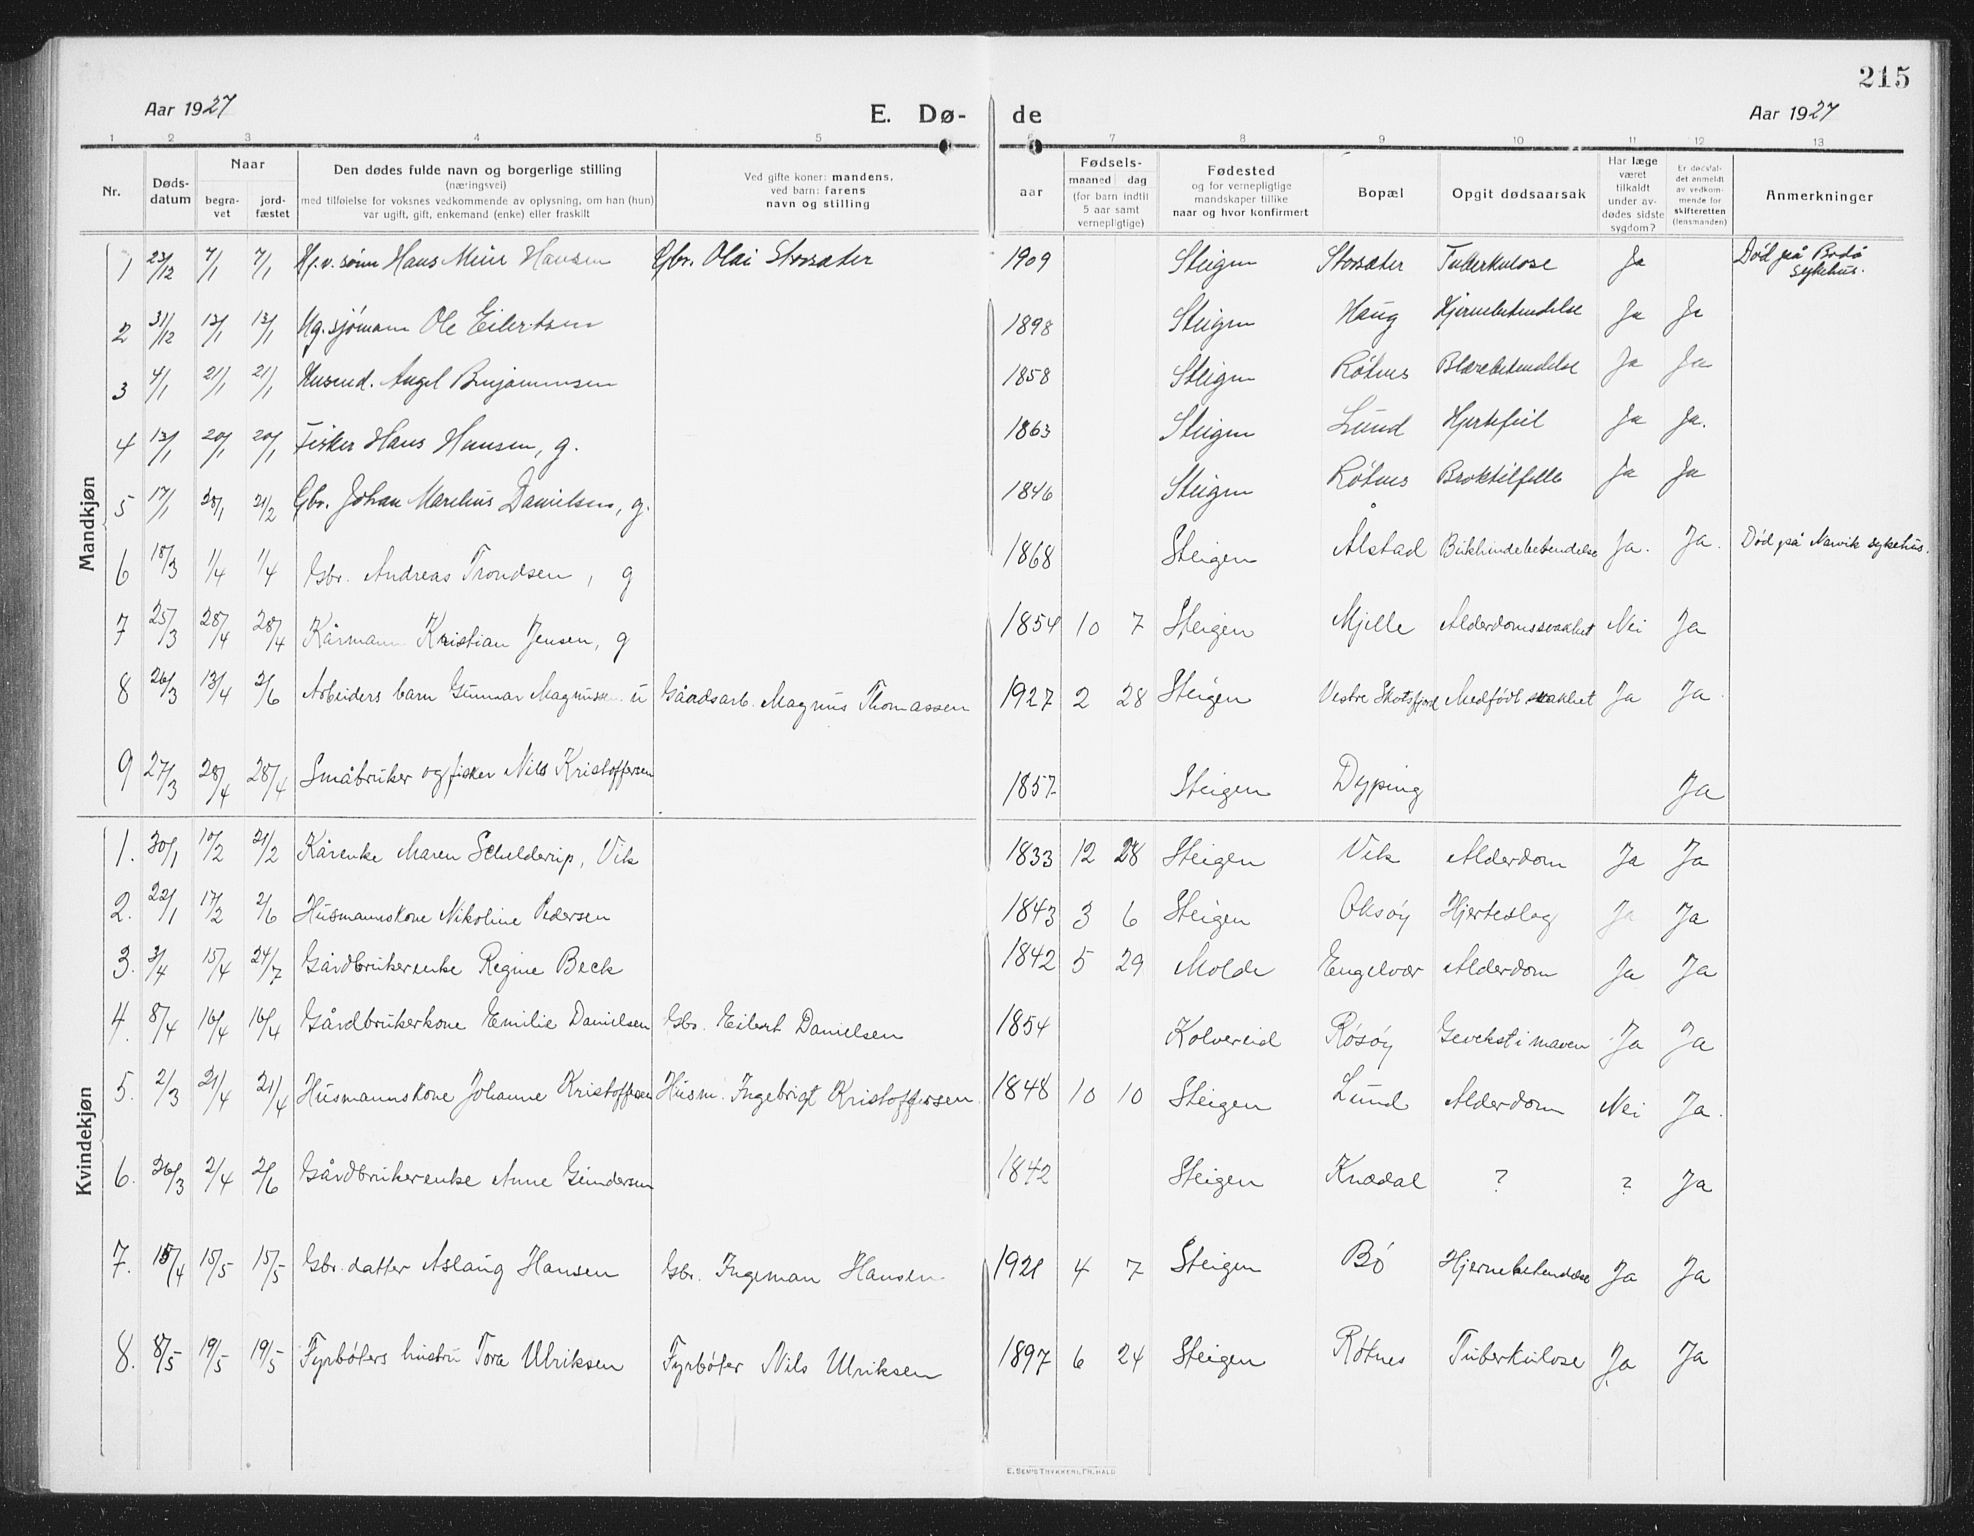 215
Aar 1927 E. Dø- de Aar 1927
1 2 3 4 5 6 7 8 9 10 11 12 13
Nr. Døds-datum Naar begra-vet jord-fæstet Den dødes fulde navn og borgerlige stilling (næringsvei) med tilføielse for voksnes vedkommende av oplysning, om han (hun) var ugift, gift, enkemand (enke) eller fraskilt Ved gifte koner: mandens, ved barn: farens navn og stilling Fødsels- aar maaned dag (for barn indtil 5 aar samt vernepligtige) Fødested og for vernepligtige mandskaper tillike naar og hvor konfirmert Bopæl Opgit dødsaarsak Har læge været tilkaldt under av-dødes sidste sygdom? Er dødsfal-det anmeldt av vedkom-mende for skifteretten (lensmanden) Anmerkninger
Mandkjøn
1 23/12 7/1 7/1 Hj.v. sønn Hans Meier Hansen Gbr. Olai Storsæter 1909 Steigen Storsæter Tuberkulose Ja Død på Bodø sykehus.
2 31/12 13/1 13/1 Ug. sjømann Ole Eilertsen 1898 Steigen Haug Hjernebetendelse Ja Ja
3 4/1 21/1 21/1 Husmd. Angel Benjaminsen 1858 Steigen Røtnes Blærebetendelse Ja Ja
4 13/1 20/1 20/1 Fisker Hans Hansen, g. 1863 Steigen Lund Hjertefeil Ja Ja.
5 17/1 28/1 21/2 Gbr. Johan Marelius Danielsen, g. 1846 Steigen Røtnes Broktilfelle Ja Ja
6 18/3 1/4 1/4 Gbr. Andreas Trondsen, g 1868 Steigen Ålstad Bukhindebetendelse Ja. Ja. Død på Narvik sykehus.
7 25/3 28/4 28/4 Kårmann Kristian Jensen, g 1854 10 7 Steigen Mjelle Alderdomssvakhet Nei Ja
8 26/3 13/4 2/6 Arbeiders barn Gunnar Magnussen u Gårdsarb. Magnus Thomassen 1927 2 28 Steigen Vestre Skotsfjord Medfødt svakhet Ja Ja.
9 27/3 28/4 28/4 Småbruker og fisker Nils Kristoffersen 1857 Steigen Dyping Ja
Kvindekjøn
1. 30/1 10/2 21/2 Kårenke Maren Schelderup, Vik 1833 12 28 Steigen Vik Alderdom Ja Ja
2. 22/1 17/2 2/6 Husmannskone Nikoline Pedersen 1843 3 6 Steigen Oksøy Hjerteslag Ja Ja
3. 3/4 15/4 24/7 Gårdbrukerenke Regine Beck 1842 5 29 Molde Engelvær Alderdom Ja Ja
4. 8/4 16/4 16/4 Gårdbrukerkone Emilie Danielsen Gbr. Eilert Danielsen 1854 Kolvereid Røsøy Gevekst i maven Ja Ja
5. 2/3 21/4 21/4 Husmannskone Johanne Kristoffersen Husm. Ingebrigt Kristoffersen 1848 10 10 Steigen Lund Alderdom Nei Ja.
6. 26/3 2/4 2/6 Gårdbrukerenke Anne Gundersen 1842 Steigen Knædal ? ? Ja
7. 15/4 15/5 15/5 Gbr. datter Aslaug Hansen Gbr. Ingeman Hansen 1921 4 7 Steigen Bø Hjernebetendelse Ja Ja
8. 8/5 19/5 19/5 Fyrbøters hustru Tora Ulriksen Fyrbøter Nils Ulriksen 1897 6 24 Steigen Røtnes Tuberkulose Ja Ja
E. SEM'S TRYKKERI, FR.HALD